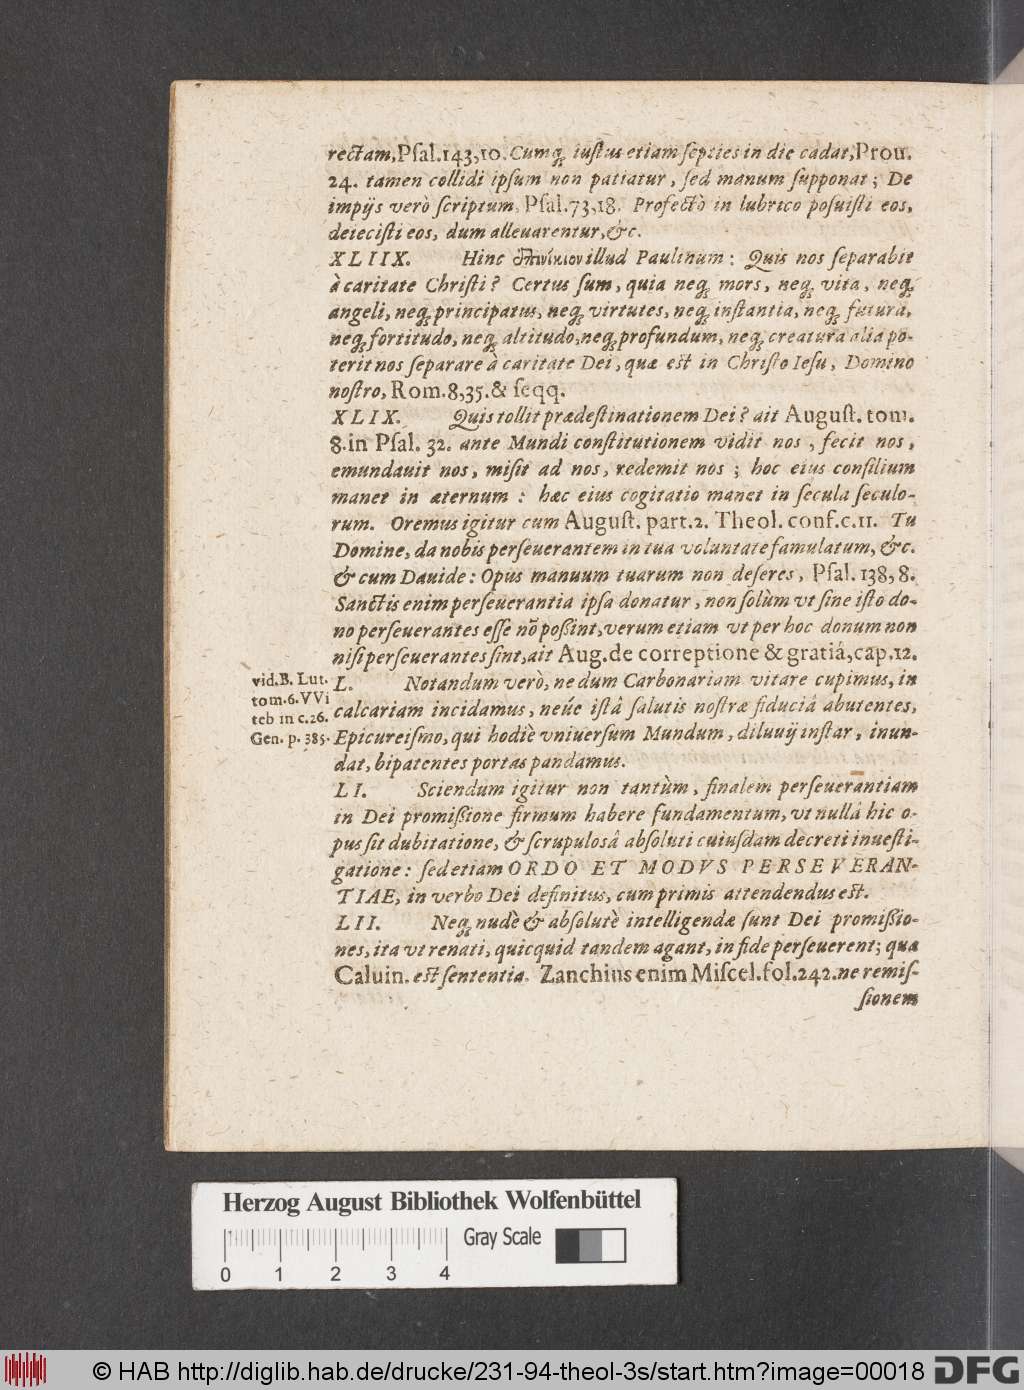 rectam, Pſal. 143, 10. Cumq́; iuſtus etiam ſepties in die cadat, Prou.
24. tamen collidi ipſum non patiatur, ſed manum ſupponat; De
impijs verò ſcriptum, Pſal. 73, 18. Profectò in lubrico poſuiſti eos,
deieciſti eos, dum alleuarentur, &c.
XLIIX. Hinc ἐπινίκιον illud Paulinum: Quis nos ſeparabit
à caritate Chriſti? Certus ſum, quia neq; mors, neq; vita, neq;
angeli, neq; principatus, neq; virtutes, neq; inſtantia, neq; futura,
neq; fortitudo, neq; altitudo, neq; profundum, neq; creatura alia po-
terit nos ſeparare à caritate Dei, quæ est in Chriſto Ieſu, Domino
noſtro, Rom. 8, 35. & ſeqq.
XLIX. Quis tollit prædeſtinationem Dei? ait Auguſt. tom.
8. in Pſal. 32. ante Mundi conſtitutionem vidit nos, fecit nos,
emundauit nos, miſit ad nos, redemit nos; hoc eius conſilium
manet in æternum: hæc eius cogitatio manet in ſecula ſeculo-
rum. Oremus igitur cum Auguſt. part. 2. Theol. conf. c. 11. Tu
Domine, da nobis perſeuerantem in tua voluntate famulatum, &c.
& cum Dauide: Opus manuum tuarum non deſeres, Pſal. 138, 8.
Sanctis enim perſeuerantia ipſa donatur, non ſolùm vt ſine iſto do-
no perſeuerantes eſſe nõ poßint, verum etiam vt per hoc donum non
niſi perſeuerantes ſint, ait Aug. de correptione & gratiâ, cap. 12.
vid. B. Lut.
tom. 6. VVi
teb in c. 26.
Gen. p. 385.
L. Notandum verò, ne dum Carbonariam vitare cupimus, in
calcariam incidamus, neúe iſtâ ſalutis noſtræ fiduciâ abutentes,
Epicureiſmo, qui hodiè vniuerſum Mundum, diluuij inſtar, inun-
dat, bipatentes portas pandamus.
LI. Sciendum igitur non tantùm, finalem perſeuerantiam
in Dei promißione firmum habere fundamentum, vt nullâ hic o-
pus ſit dubitatione, & ſcrupuloſâ abſoluti cuiuſdam decreti inueſti-
gatione: ſed etiam ORDO ET MODVS PERSEVERAN-
TIAE, in verbo Dei definitus, cum primis attendendus est.
LII. Neq; nudè & abſolutè intelligendæ ſunt Dei promißio-
nes, ita vt renati, quicquid tandem agant, in fide perſeuerent; qua
Caluin. est ſententia. Zanchius enim Miſcel. fol. 242. ne remiſ-
ſionem
Herzog August Bibliothek Wolfenbüttel
Gray Scale
0 1 2 3 4
© HAB http://diglib.hab.de/drucke/231-94-theol-3s/start.htm?image=00018 DFG